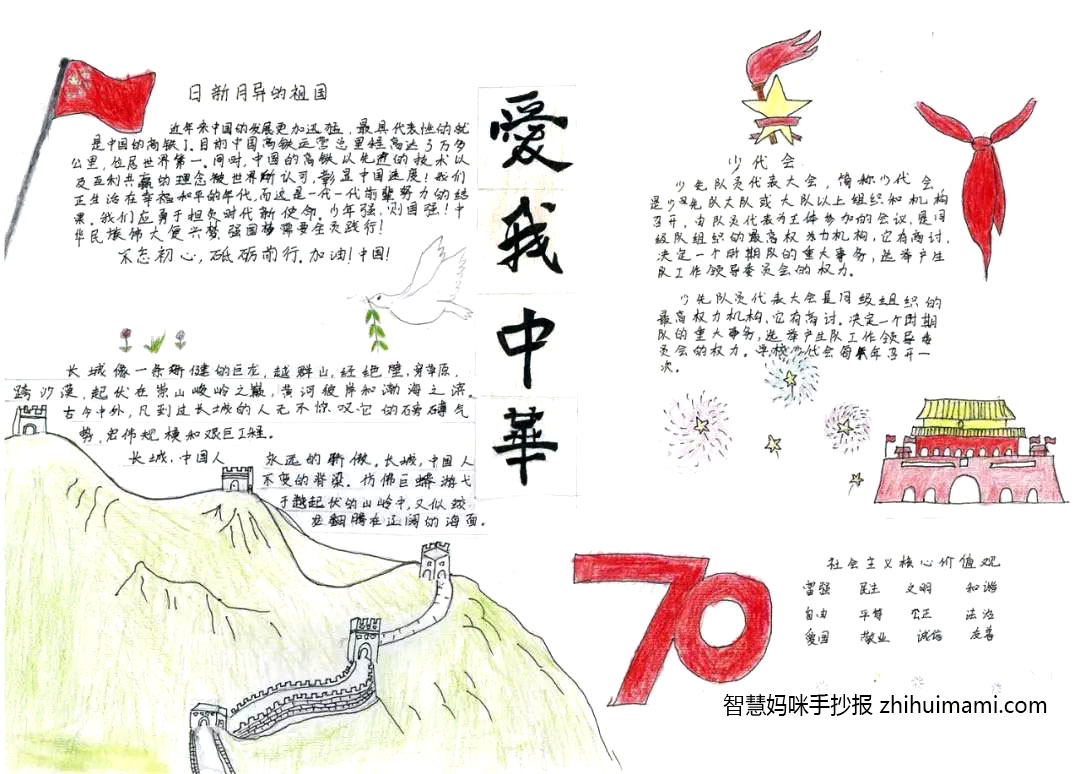 日新月异的祖国
近年来中国的发展更加迅猛，最具代表性的就
是中国的高铁了。目前中国高铁运营总里程高达3万多
公里，位居世界第一。同时，中国的高铁以先进的技术以
及互利共赢的理念被世界所认可，彰显中国速度！我们
正生活在幸福和平的年代，而这是一代一代前辈努力的结
果。我们应勇于担负时代新使命。少年强，则国强！中
华民族伟大复兴梦、强国梦需要全员践行！
不忘初心，砥砺前行。加油！中国！
长城像一条矫健的巨龙，越群山，经绝壁，穿草原，
跨沙漠，起伏在崇山峻岭之巅，黄河彼岸和渤海之滨。
古今中外，凡到过长城的人无不惊叹它的磅礴气
势，宏伟规模和艰巨工程。
长城，中国人永远的骄傲。长城，中国人
不变的脊梁。仿佛巨蟒游弋
于越起伏的山岭中，又似蛟
龙翻腾在辽阔的海面。
愛
我
中
華
少代会
少先队员代表大会，简称少代会
是少先队大队或大队以上组织和机构
召开，由队员代表为主体参加的会议，是同
级队组织的最高权力机构，它有商讨，
决定一个时期队的重大事务，选举产生
队工作领导委员会的权力。
少先队员代表大会是同级组织的
最高权力机构，它有商讨、决定一个时期
队的重大事务，选举产生队工作领导委
员会的权力。学校少代会每年召开一
次。
70
社会主义核心价值观
富强 民主 文明 和谐
自由 平等 公正 法治
爱国 敬业 诚信 友善
智慧妈咪手抄报 zhihuimami.com